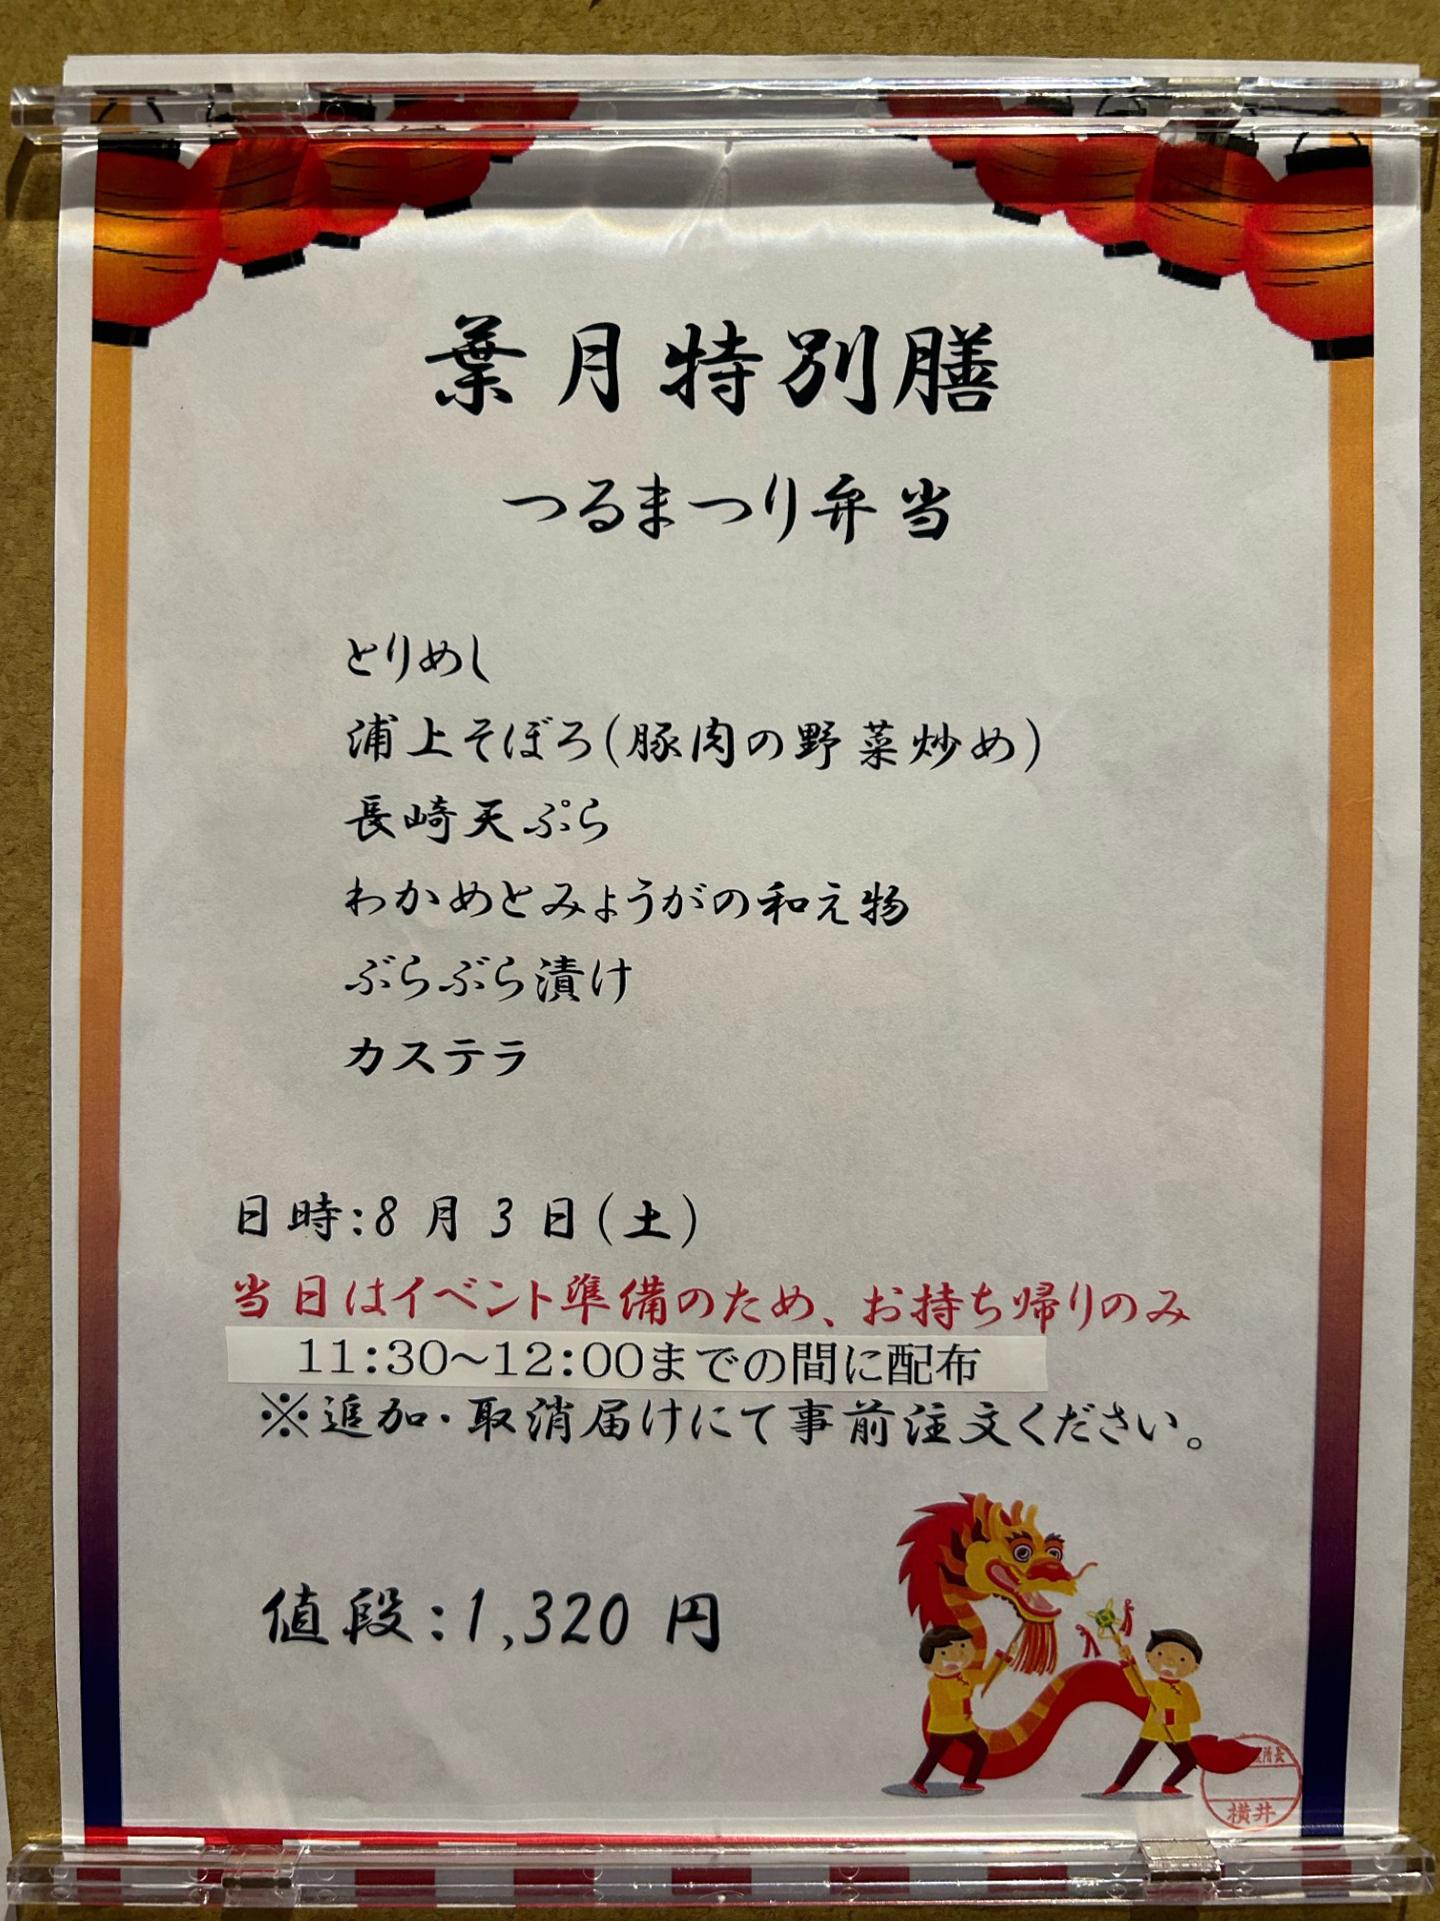 葉月特別膳
つるまつり弁当
とりめし
浦上そぼろ(豚肉の野菜炒め)
長崎天ぷら
わかめとみょうがの和え物
ぶらぶら漬け
カステラ
日時:8月3日(土)
当日はイベント準備のため、お持ち帰りのみ
11:30~12:00までの間に配布
※追加・取消届けにて事前注文ください。
値段:1,320円
横井